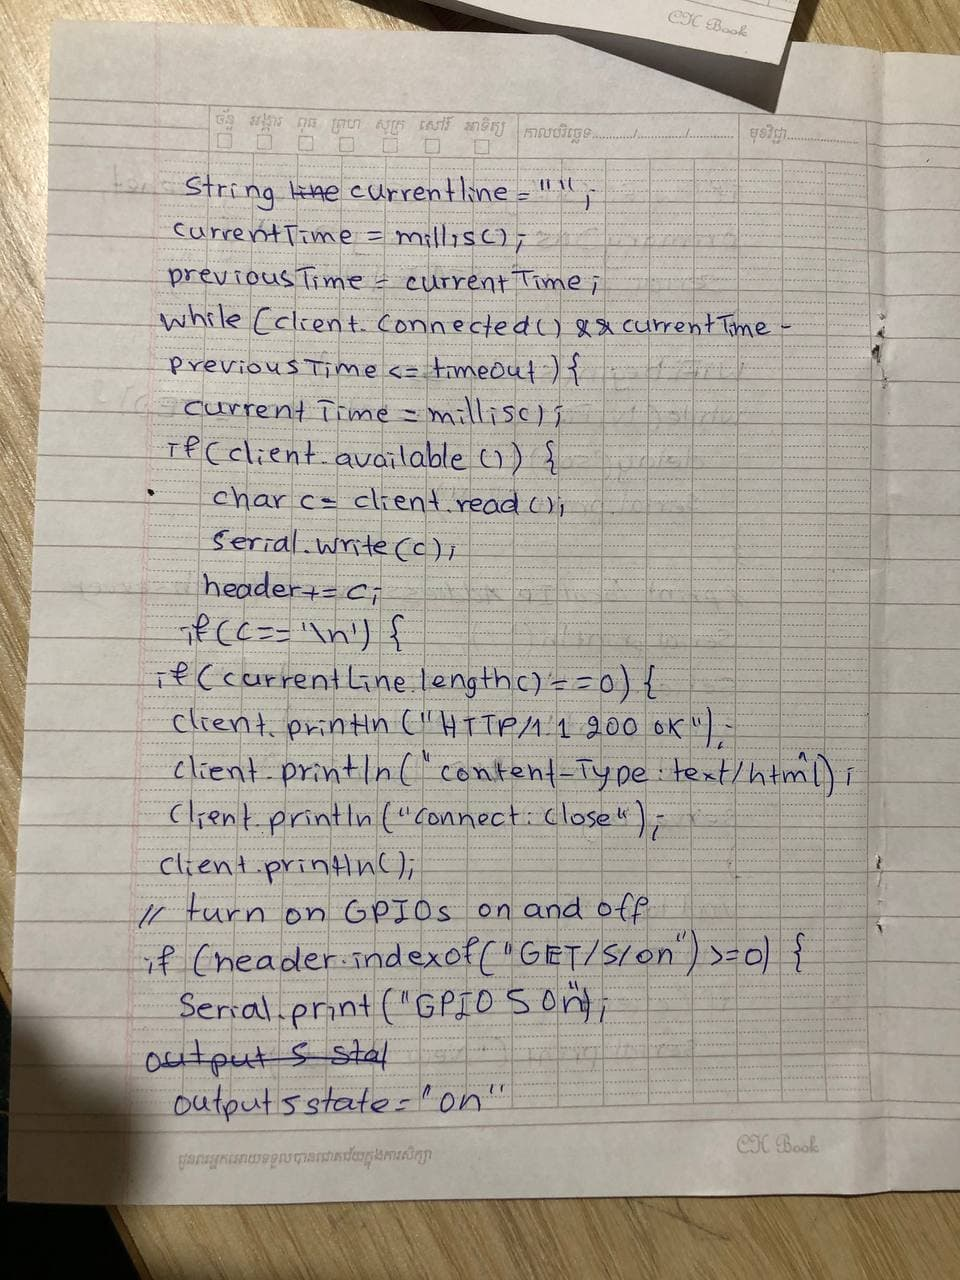 CK Book
ច័ន្ទ អង្គារ ពុធ ព្រហ សុក្រ សៅរ៍ អាទិត្យ កាលបរិច្ឆេទ............/............/............ មុខវិជ្ជា....................
String line currentline = "";
currentTime = millis();
previousTime = currentTime;
while (client.connected() && currentTime -
previousTime <= timeout) {
currentTime = millis();
if (client.available ()) {
char c = client.read();
serial.write(c);
header += c;
if (c == '\n') {
if (currentLine.length() == 0) {
client.println ("HTTP/1.1 200 OK");
client.println ("content-Type: text/html);
client.println ("connect: close");
client.println();
// turn on GPIOs on and off
if (header.indexof("GET/5/on") >=0) {
Serial.print ("GPIO 5 on");
output 5 stat
output5state = "on"
CK Book